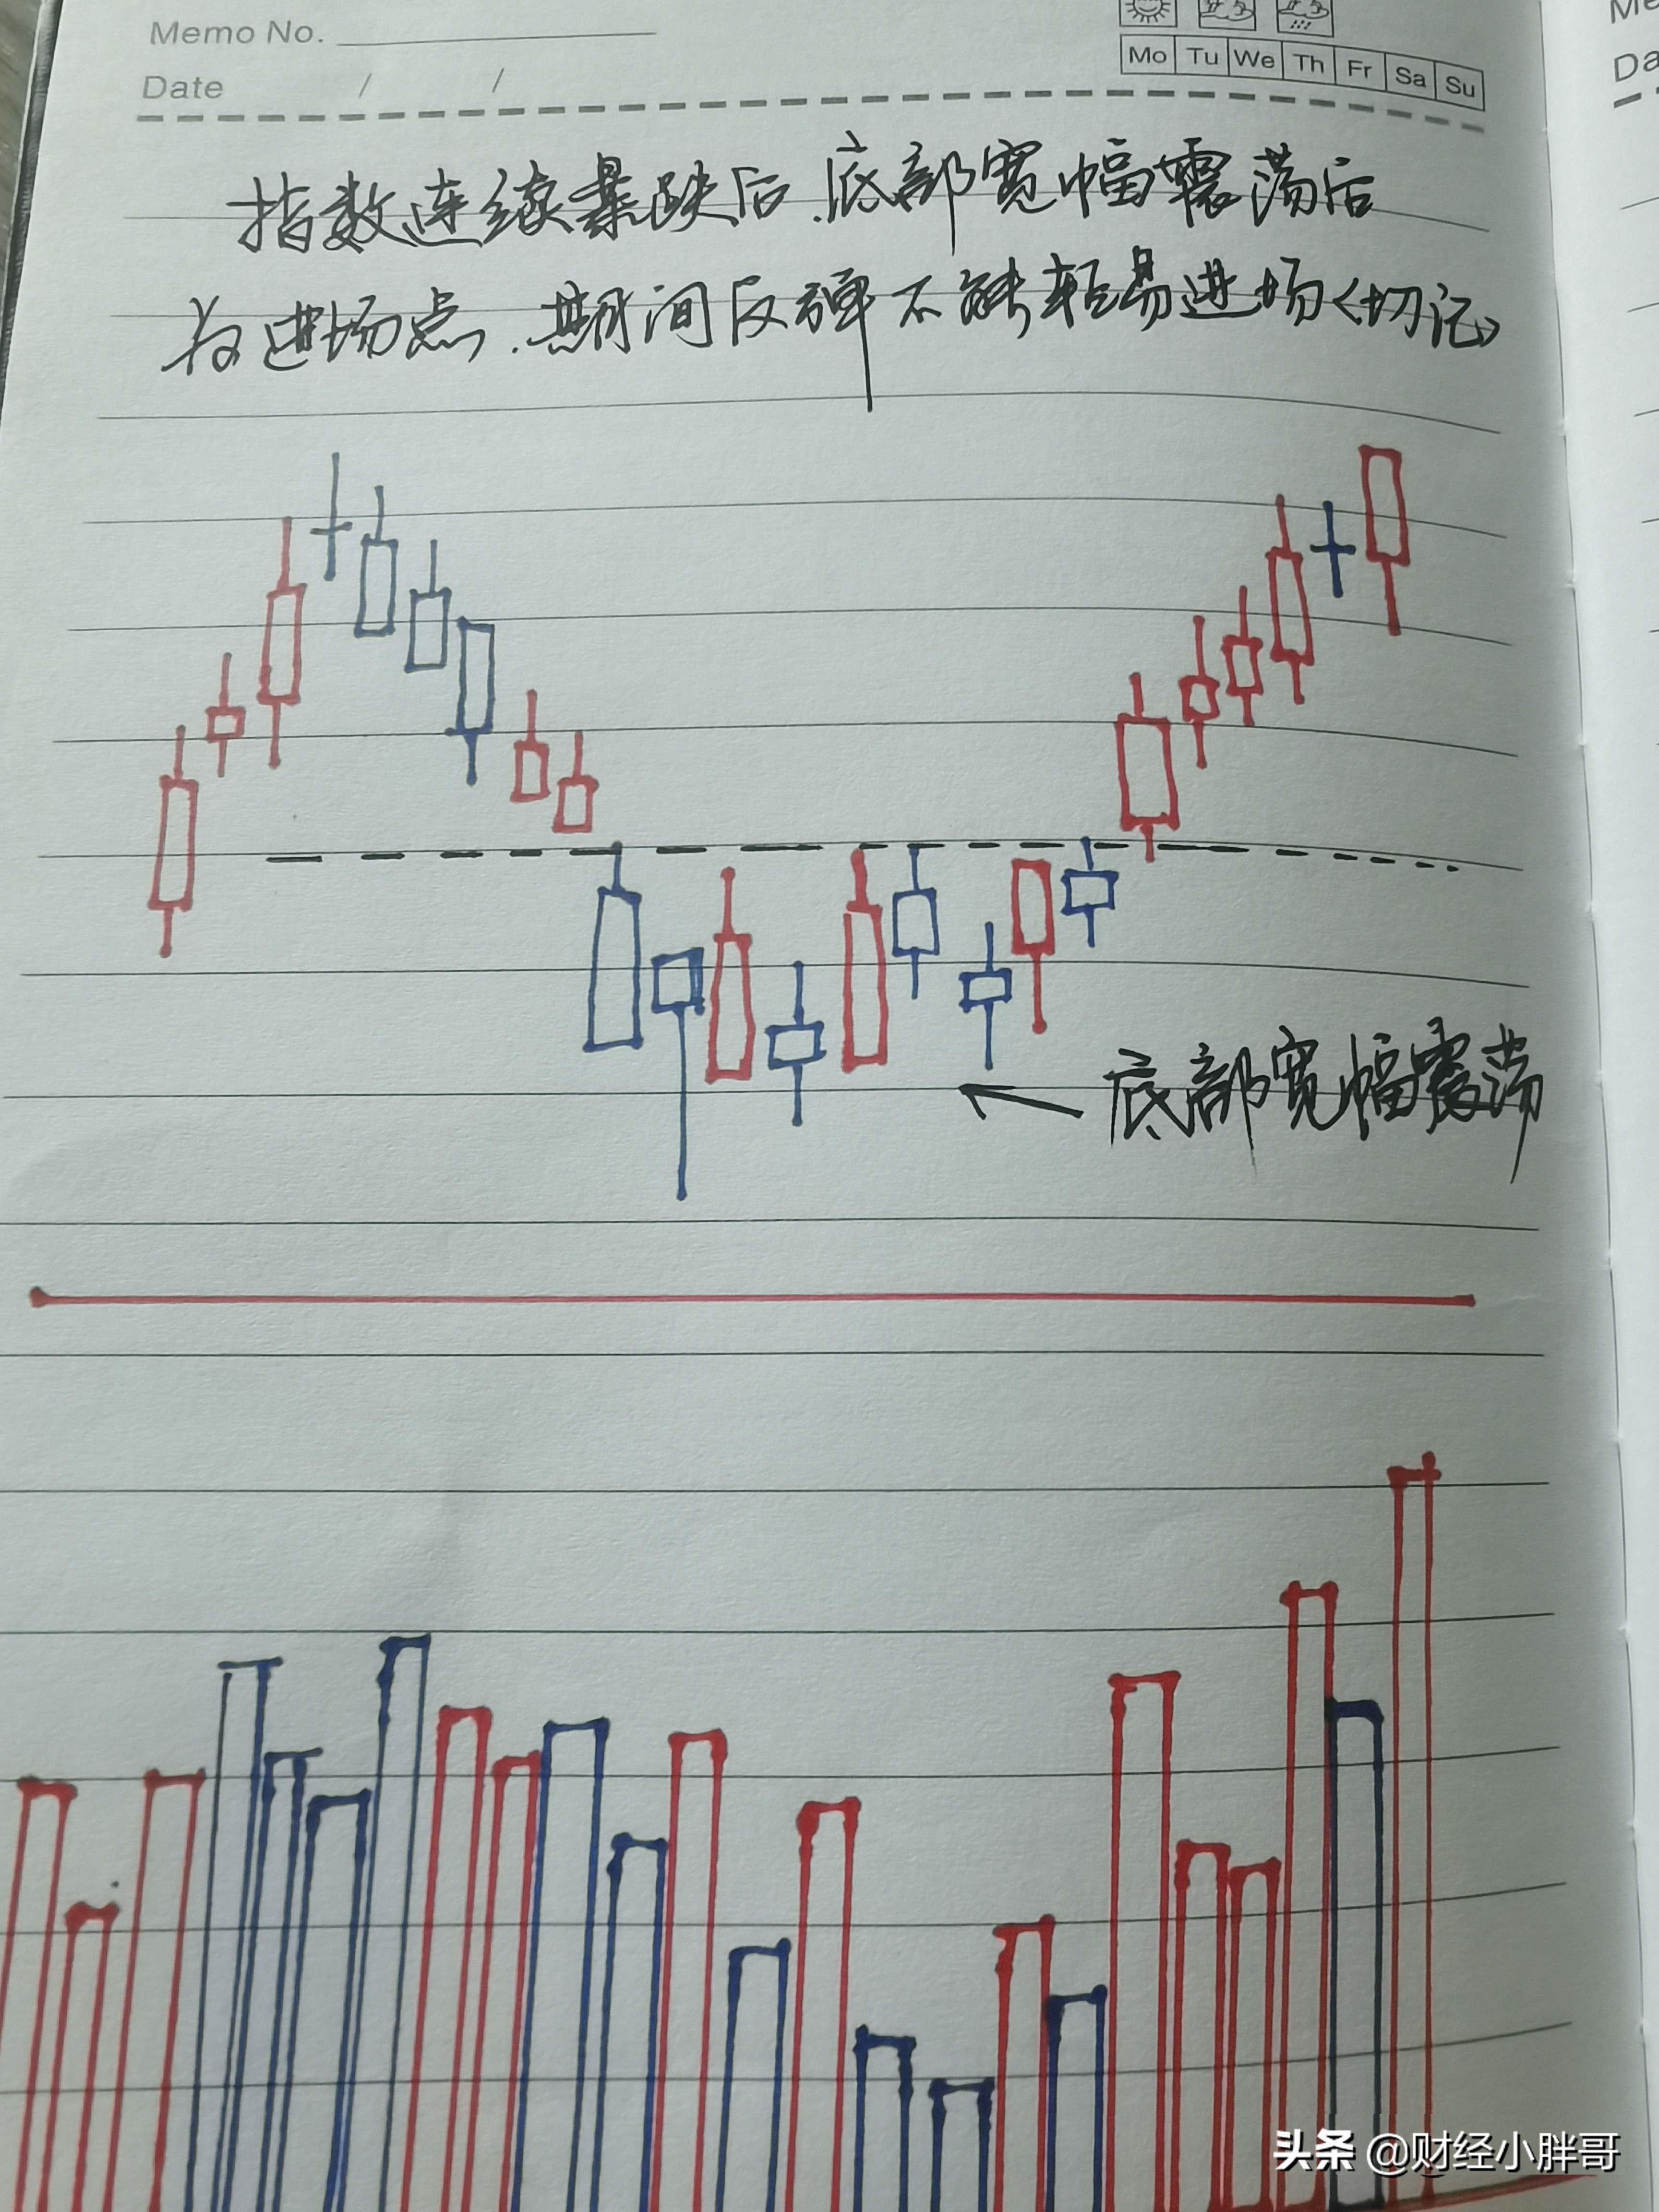 Memo No.
Date / /
Mo Tu We Th Fr Sa Su
Me
Da
指数连续暴跌后.底部宽幅震荡后
为进场点.期间反弹不能轻易进场<切记>
底部宽幅震荡
头条 @财经小胖哥